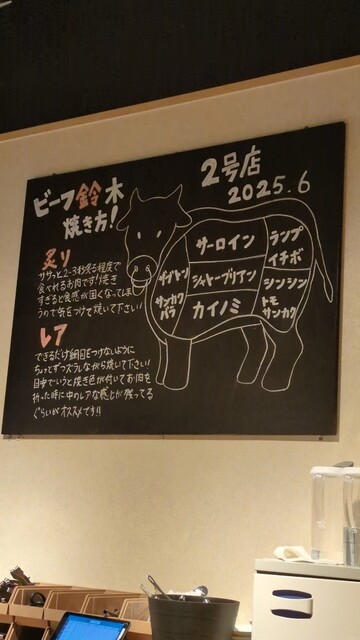 ビーフ鈴木
焼き方!
2号店
2025.6
炙り
ササッと2~3秒炙る程度で
食べれるお肉です!焼き
すぎると食感が固くなってしま
うので気をつけて焼いて下さい!
レア
できるだけ網目をつけないように
ちょっとずつズラしながら焼いて下さい!
目安でいうと焼き色が付いてお肉を
折った時に中のレアな感じが残ってる
ぐらいがオススメです!!
サーロイン
ランプ
イチボ
ザブトン
シャトーブリアン
シンシン
サンカク
バラ
カイノミ
トモ
サンカク